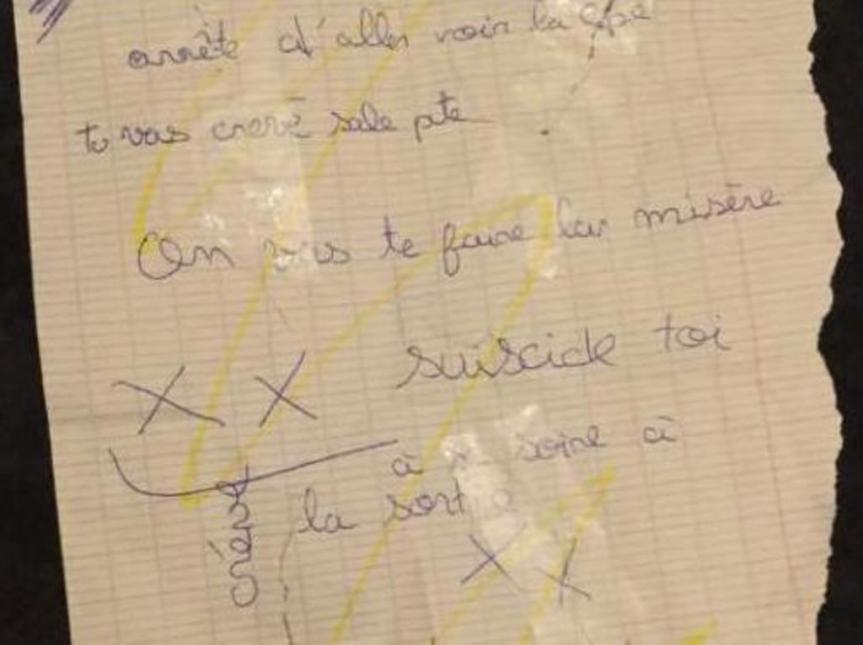 arrête d'aller voir la cpe
to vas crevé sale pte
On vas te faire la misère
suiscide toi
à soire à
la sortie
crève